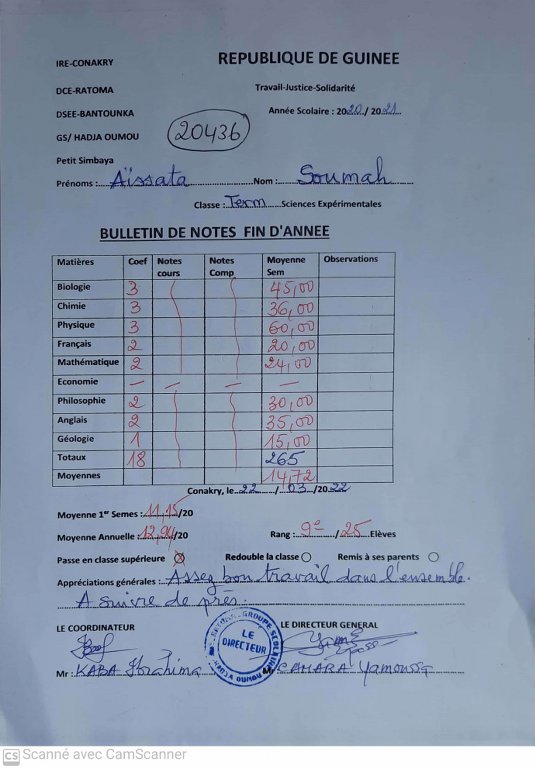 IRE-CONAKRY
REPUBLIQUE DE GUINEE
DCE-RATOMA
Travail-Justice-Solidarité
DSEE-BANTOUNKA
Année Scolaire : 2020/ 2021
GS/ HADJA OUMOU
20436
Petit Simbaya
Prénoms : Aïssata Nom : Soumah
Classe : Term Sciences Expérimentales
BULLETIN DE NOTES FIN D'ANNEE
Matières Coef Notes cours Notes Comp Moyenne Sem Observations
Biologie 3 45,00
Chimie 3 36,00
Physique 3 60,00
Français 2 20,00
Mathématique 2 24,00
Economie — — —
Philosophie 2 30,00
Anglais 2 35,00
Géologie 1 15,00
Totaux 18 265
Moyennes 14,72
Conakry, le 22 / 03 /20 22
Moyenne 1er Semes : 11,15/20
Moyenne Annuelle : 12,94/20 Rang : 9e / 25 Elèves
Passe en classe supérieure Redouble la classe Remis à ses parents
Appréciations générales : Assez bon travail dans l'ensemble.
A suivre de près.
LE COORDINATEUR LE DIRECTEUR GENERAL
LE DIRECTEUR
Mr : KABA Ibrahima CAMARA Yamoussa
CS Scanné avec CamScanner